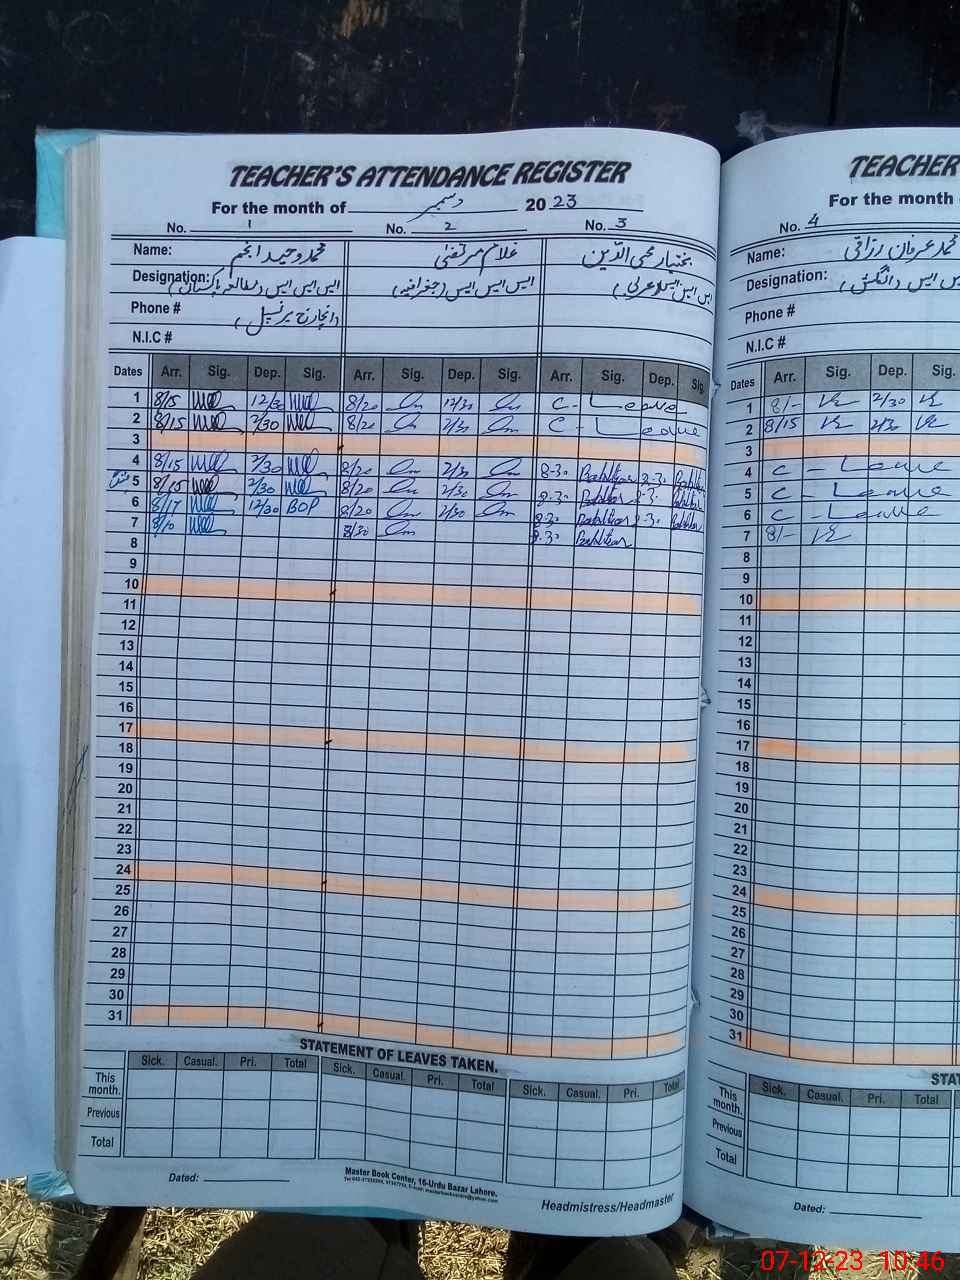 TEACHER'S ATTENDANCE REGISTER
For the month of دسمبر 2023
No. 1 No. 2 No. 3
Name: محمد وحید انجم غلام مرتضیٰ بختیار محی الدین
Designation: ایس ایس ایس (مطالعہ پاکستان) ایس ایس ایس (جغرافیہ) ایس ایس ایس (عربی)
Phone # (انچارج پرنسپل)
N.I.C #
Dates Arr. Sig. Dep. Sig. Arr. Sig. Dep. Sig. Arr. Sig. Dep. Sig.
1 8/15 12/30 8/20 12/30 C - Leave
2 8/15 2/30 8/20 2/30 C - Leave
3
4 8/15 2/30 8/20 2/30 8-30 Bakhtiar 2-30 Bakhtiar
5 8/15 2/30 8/20 2/30 8-30 Bakhtiar 2-30 Bakhtiar
6 8/17 12/30 BOP 8/20 2/30 8-30 Bakhtiar 2-30 Bakhtiar
7 8/10 8/30 8-30 Bakhtiar
8
9
10
11
12
13
14
15
16
17
18
19
20
21
22
23
24
25
26
27
28
29
30
31
STATEMENT OF LEAVES TAKEN.
Sick. Casual. Pri. Total Sick. Casual. Pri. Total Sick. Casual. Pri. Total
This month.
Previous
Total
Dated:
Master Book Center, 16-Urdu Bazar Lahore.
Headmistress/Headmaster
TEACHER
For the month
No. 4
Name: محمد عرفان رزاقی
Designation: ایس (انگلش)
Phone #
N.I.C #
Dates Arr. Sig. Dep. Sig.
1 8/- 2/30
2 8/15 2/30
3
4 C - Leave
5 C - Leave
6 C - Leave
7 8/-
8
9
10
11
12
13
14
15
16
17
18
19
20
21
22
23
24
25
26
27
28
29
30
31
STAT
Sick. Casual. Pri. Total
This month.
Previous
Total
Dated:
07-12-23 10:46